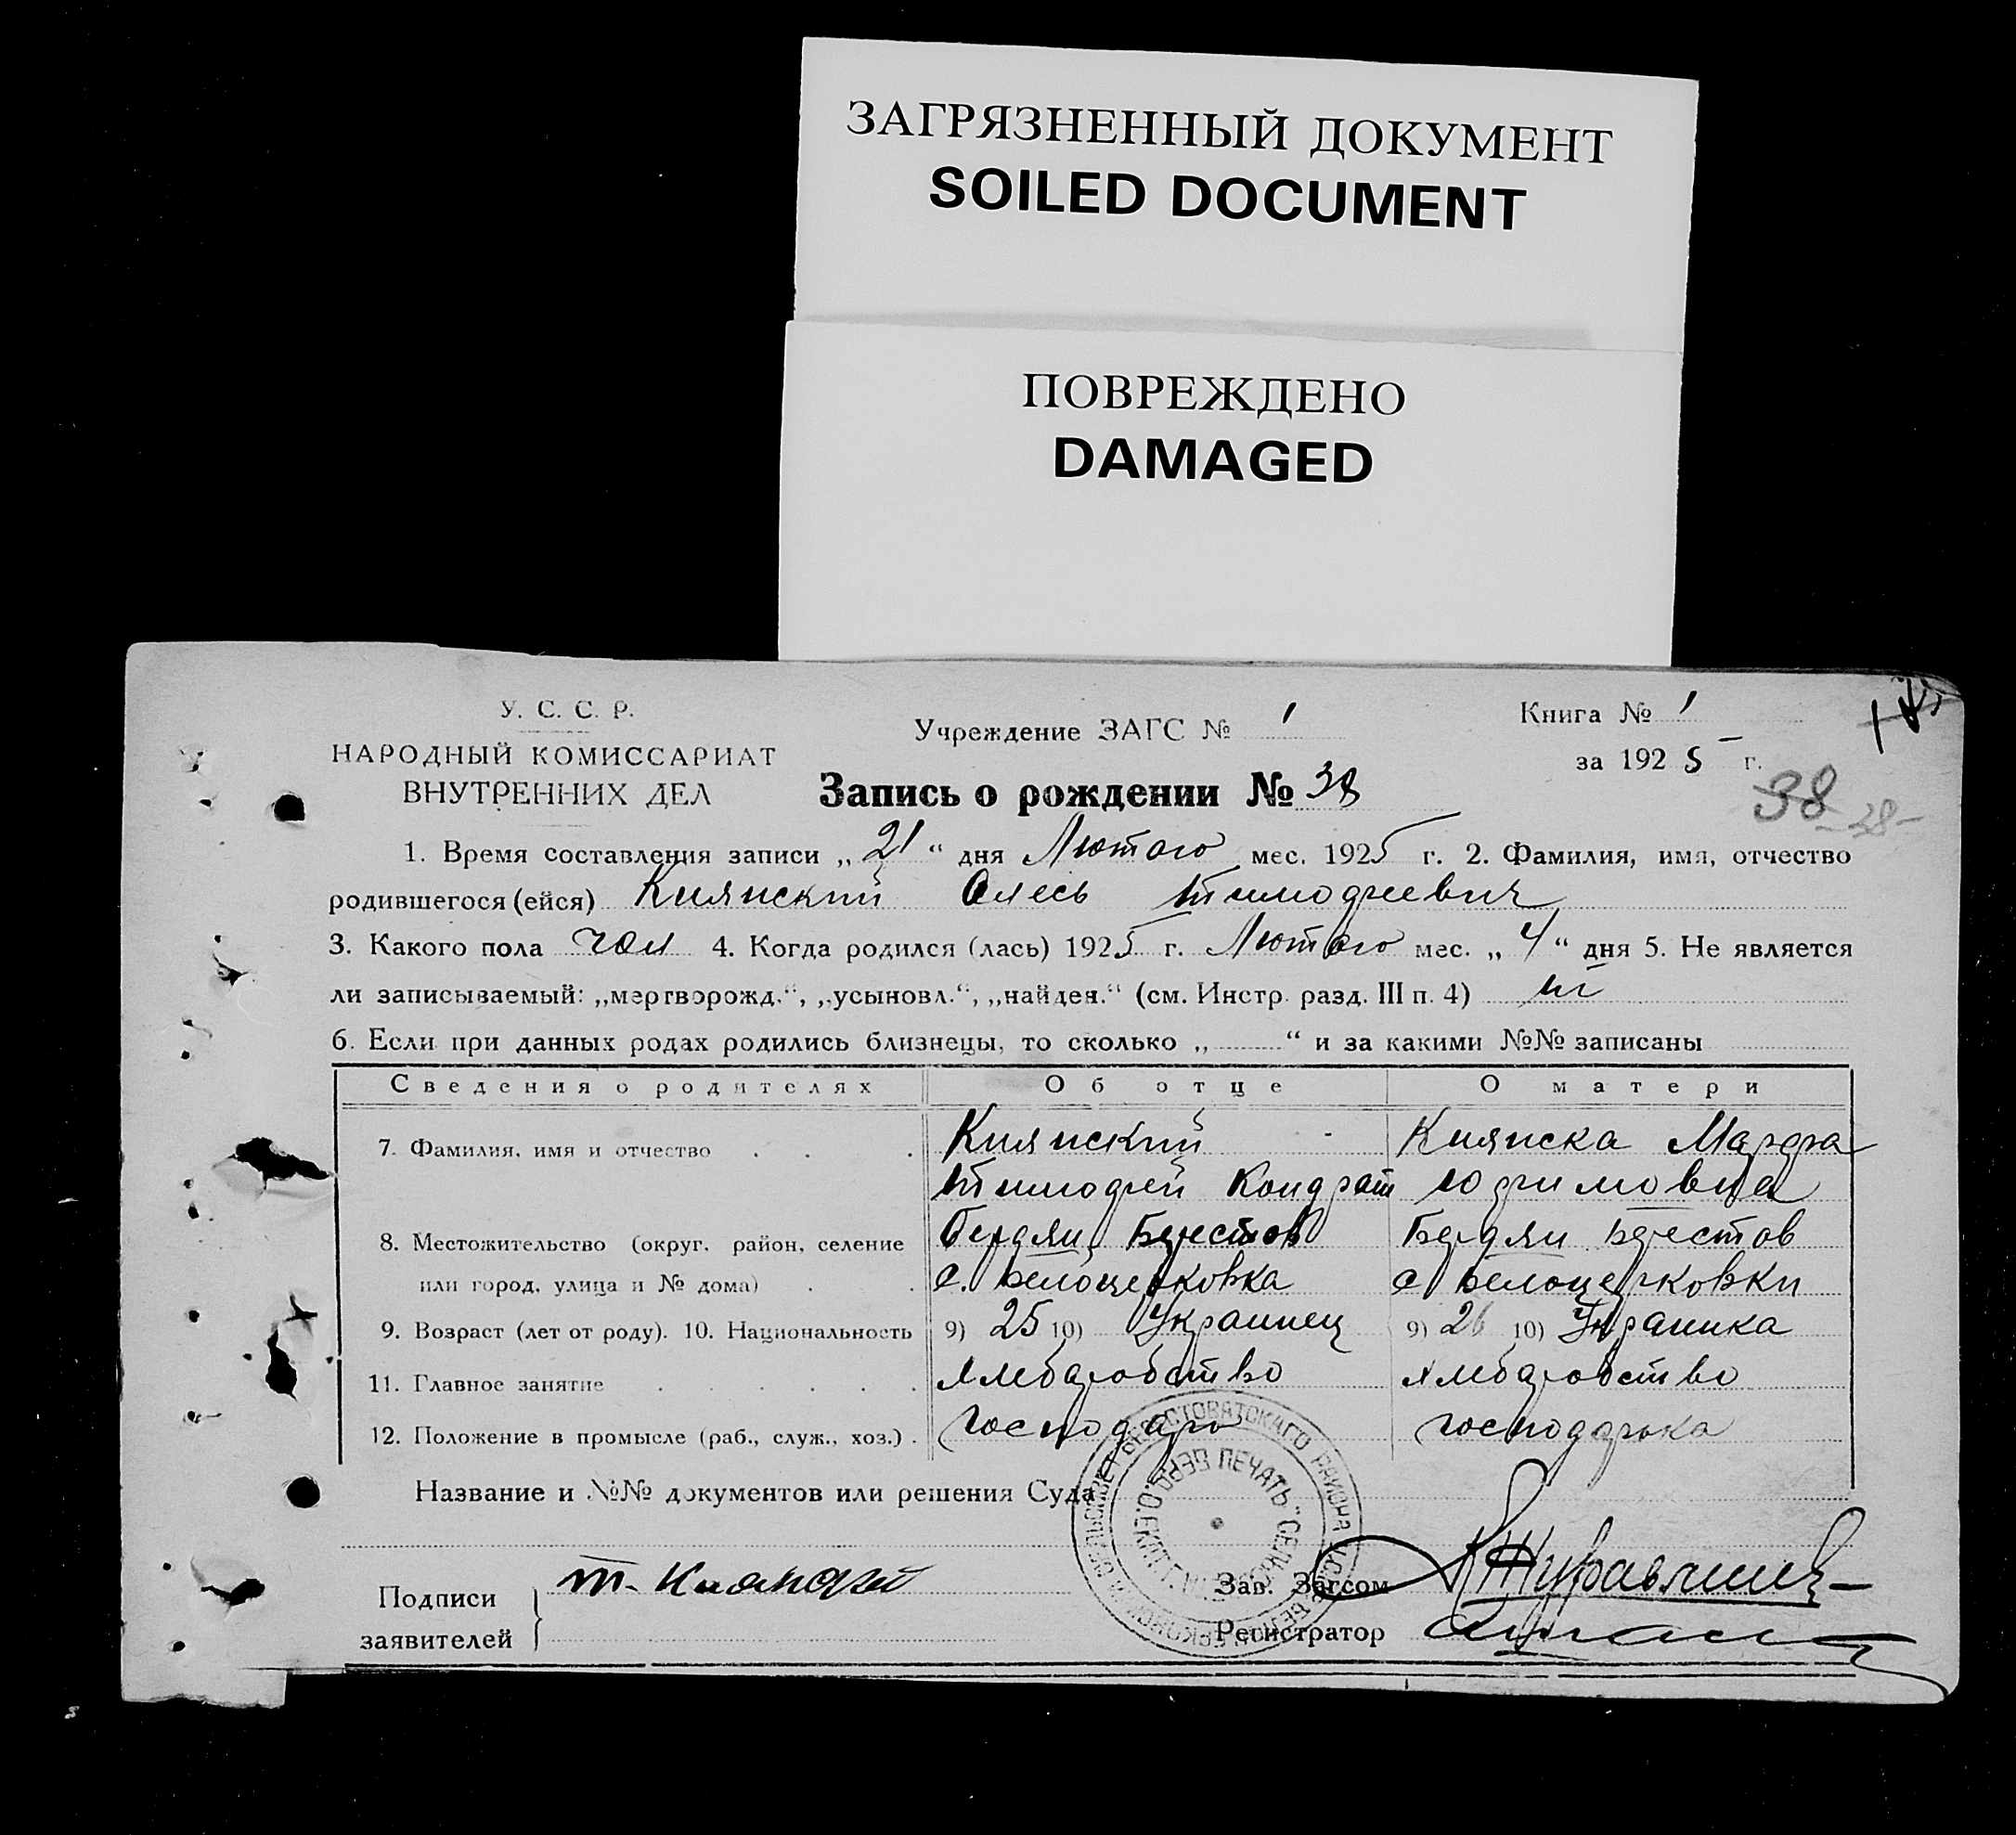 ЗАГРЯЗНЕННЫЙ ДОКУМЕНТ
SOILED DOCUMENT
ПОВРЕЖДЕНО
DAMAGED
У. С. С. Р.
НАРОДНЫЙ КОМИССАРИАТ
ВНУТРЕННИХ ДЕЛ
Учреждение ЗАГС № 1
Книга № 1
за 1925 г.
Запись о рождении № 38
38 28
1. Время составления записи „21“ дня Лютого мес. 1925 г. 2. Фамилия, имя, отчество
родившегося (ейся) Киянский Олесь Тимофиевич
3. Какого пола чол 4. Когда родился (лась) 1925 г. Лютого мес. „4“ дня 5. Не является
ли записываемый: „мертворожд.“, „усыновл.“, „найден.“ (см. Инстр. разд. III п. 4) ні
6. Если при данных родах родились близнецы, то сколько „ “ и за какими №№ записаны
Сведения о родителях Об отце О матери
7. Фамилия, имя и отчество Киянский Киянска Марфа
Тимофей Кондрат Юхимовна
8. Местожительство (округ. район, селение Бердян. Берестов Бердян Берестов
или город, улица и № дома) с. Белоцерковка с Белоцерковки
9. Возраст (лет от роду). 10. Национальность 9) 25 10) Украинец 9) 26 10) Украинка
11. Главное занятие хлеборобство хлеборобство
12. Положение в промысле (раб., служ., хоз.) господарь господарька
Название и №№ документов или решения Суда
Подписи
заявителей
Т.
Зав. Загсом
Регистратор
БЕРЕСТОВАТСКАГО РАЙОНА
ПЕЧАТЬ